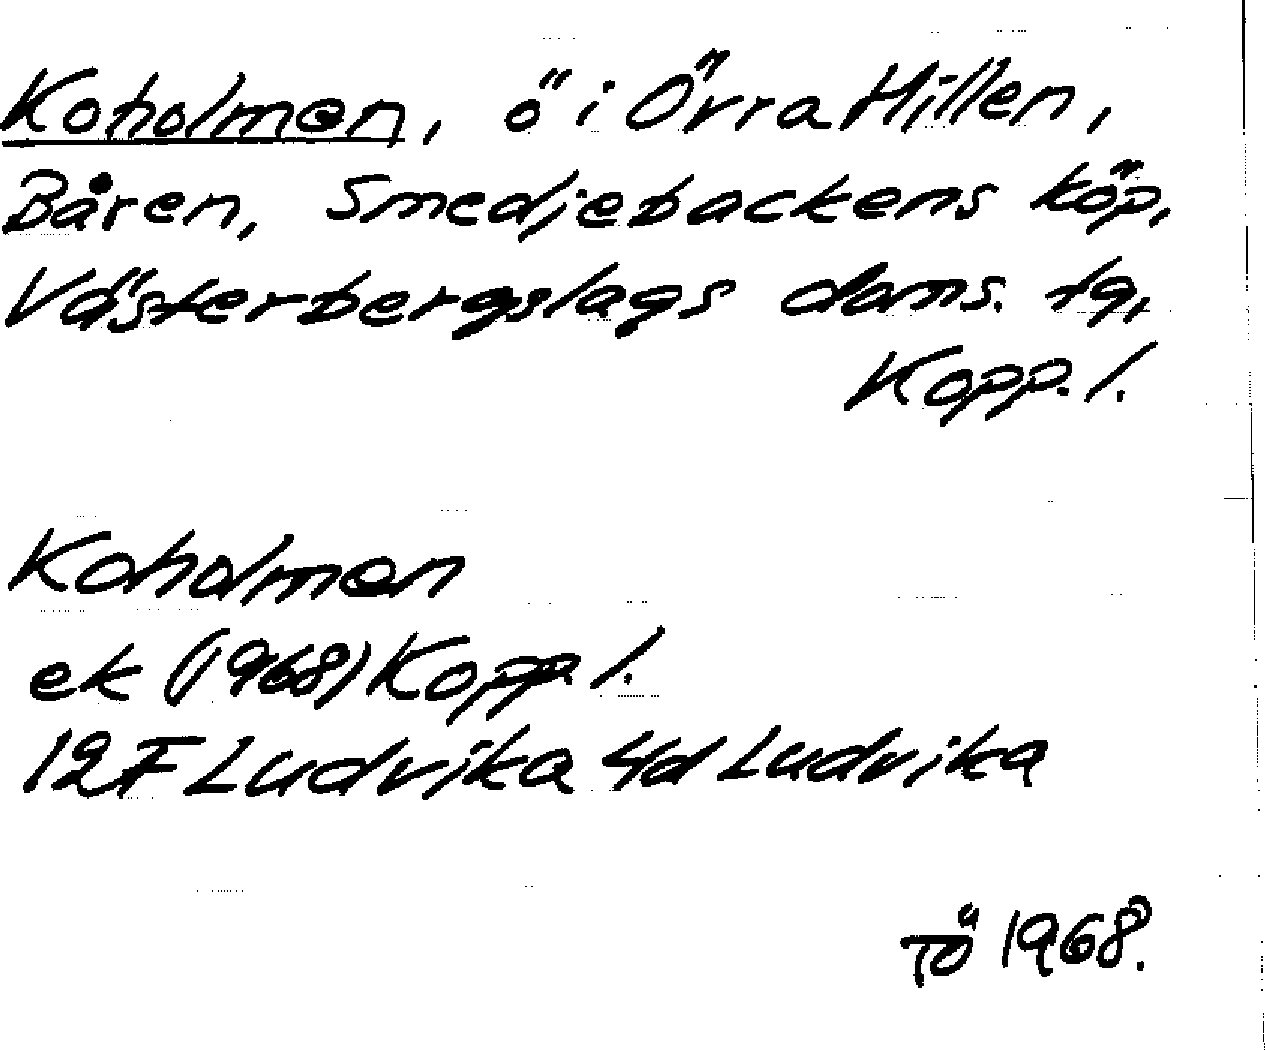 Koholmen, ö i Övra Hillen,
Båren, Smedjebackens köp,
Västerbergslags doms. tg,
Kopp. l.
Koholmen
ek (1968) Kopp l.
12F Ludvika 4d Ludvika
TÖ 1968.